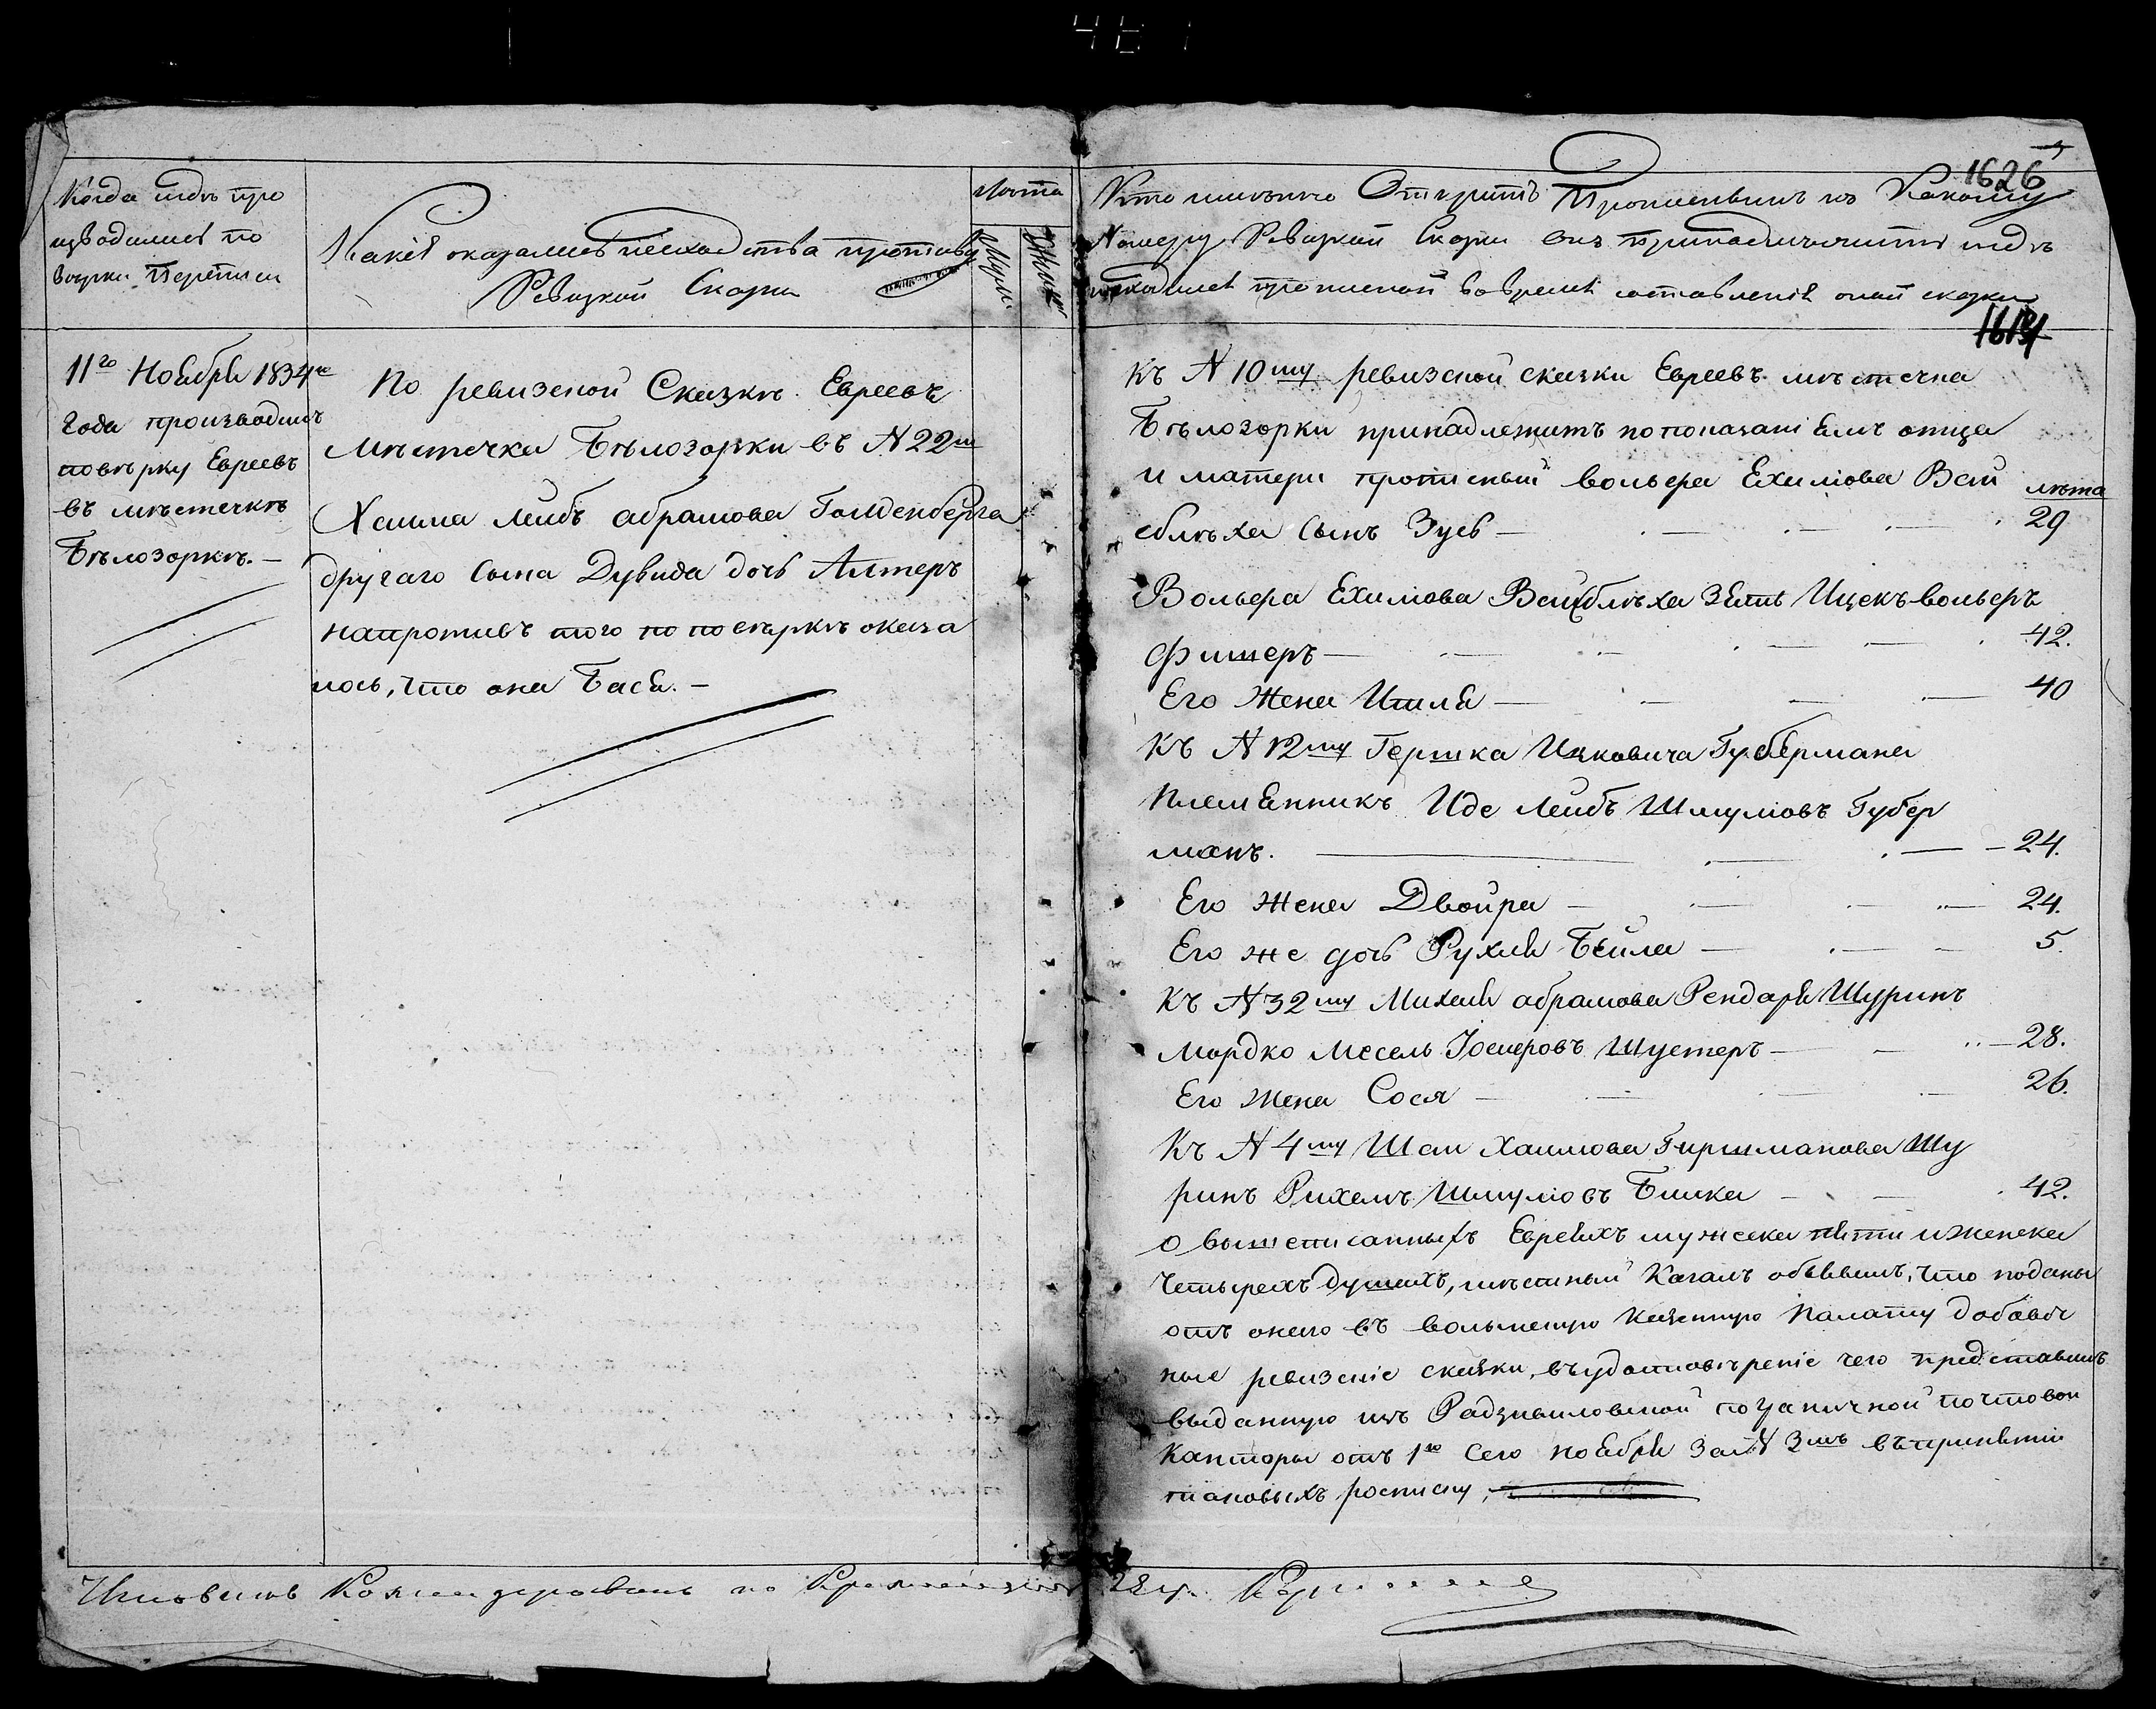 1626
Когда и гдѣ про
изводилась по
вѣрка Переписи
Какія оказались несходства противу
Ревизкой Скаски
Лѣта
Муж.
Жен.
Кто имянно Открытъ Прописнымъ къ Какому
Номеру Ревизкой Скаски онъ принадлежитъ и гдѣ
находился прописной вовремя составленія оной скаски
11го Ноября 1834го
Года производилъ
повѣрку Евреевъ
въ мѣстечкѣ
Бѣлозоркѣ.—
По ревизской Сказкѣ Евреевъ
Мѣстечка Бѣлозорки въ N 22м
Хаима Лейбъ абрамова Голденберга
другаго сына Дувида дочь Алтеръ
напротивъ того по повѣркѣ оказа
лось, что она Бася.—
Къ N 10му ревизской сказки Евреевъ мѣстечка
Бѣлозорки принадлежитъ по показаніямъ отца
и матери прописный вольфа Ехилова Вай
лѣта
сблѣха Сынъ Зусь — 29
Вольфа Ехилова Вайсблѣха Зять Ицекъ вольфъ
Фишеръ — 42.
Его Жена Итля — 40
Къ N 12му Гершка Ицковича Губермана
Племянникъ Иде Лейбъ Шмулiовъ Губер
манъ. — 24.
Его жена Двойра — 24.
Его же дочь Рухля Бейла — 5.
Къ N 32му Михеля абрамова Рендаря Шуринъ
Мордко Месель Іосифовъ Шустеръ — 28.
Его жена Сося — 26.
Къ N 4му Шаи Хаимова Гиршманова Шу
ринъ Рихелъ Шмулiовъ Бинка — 42.
О вышеписанныхъ Евреяхъ мужеска пяти и женска
Четырехъ душахъ, мѣстный Кагалъ объявилъ, что поданы
отъ онаго въ волынскую Казенную Палату добавоч
ные ревизскіе сказки, въ удостовѣреніе чего представилъ
выданную изъ Радзивиловской пограничной почтовой
Канторы отъ 1го Сего ноября за N 3мъ въ принятіи
таковыхъ росписку,
Чиновникъ Командированъ по Кременецкому